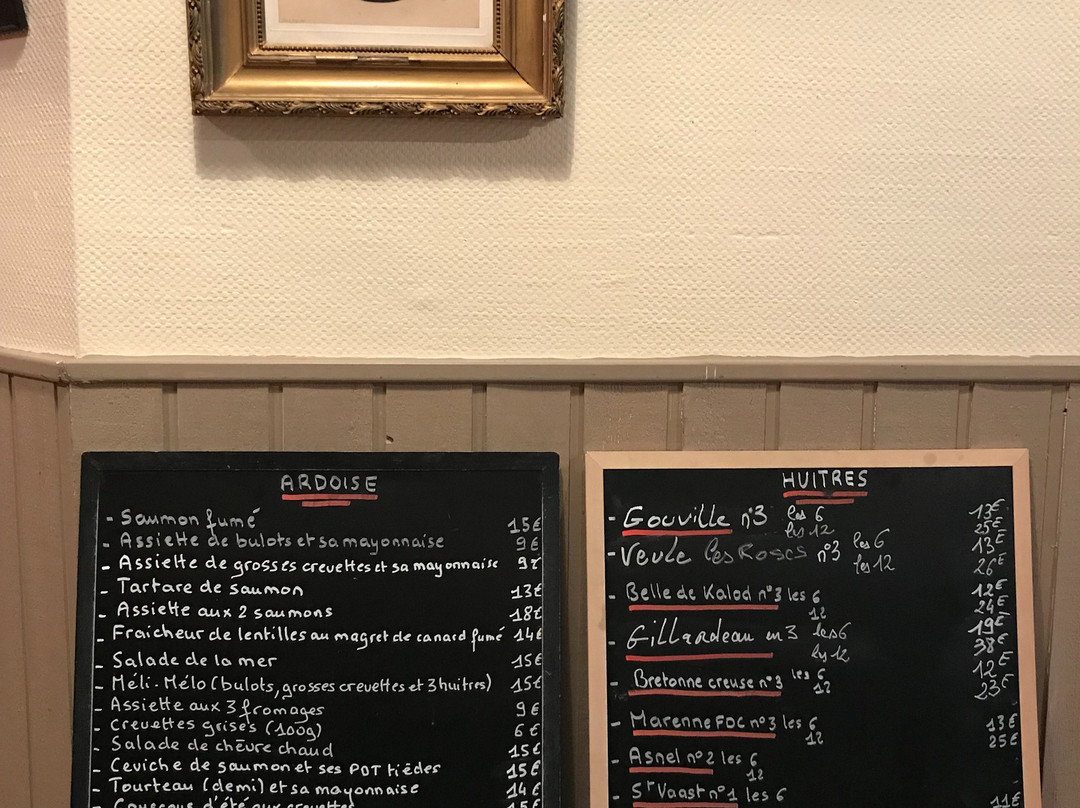 ARDOISE
- Saumon fumé 15€
- Assiette de bulots et sa mayonnaise 9€
- Assiette de grosses crevettes et sa mayonnaise 9€
- Tartare de saumon 13€
- Assiette aux 2 saumons 18€
- Fraicheur de lentilles au magret de canard fumé 14€
- Salade de la mer 15€
- Méli-Mélo (bulots, grosses crevettes et 3 huitres) 15€
- Assiette aux 3 fromages 9€
- Crevettes grises (100g) 6€
- Salade de chèvre chaud 15€
- Ceviche de saumon et ses POT tièdes 15€
- Tourteau (demi) et sa mayonnaise 14€
- Couscous d'été aux crevettes 15€
HUITRES
- Gouville n°3 les 6 13€
les 12 25€
- Veule les Roses n°3 les 6 13€
les 12 26€
- Belle de Kalod n°3 les 6 12€
12 24€
- Gillardeau n°3 les 6 19€
les 12 38€
- Bretonne creuse n°3 les 6 12€
12 23€
- Marenne FOC n°3 les 6 13€
12 25€
- Asnel n°2 les 6
12
- St Vaast n°1 les 6 11€